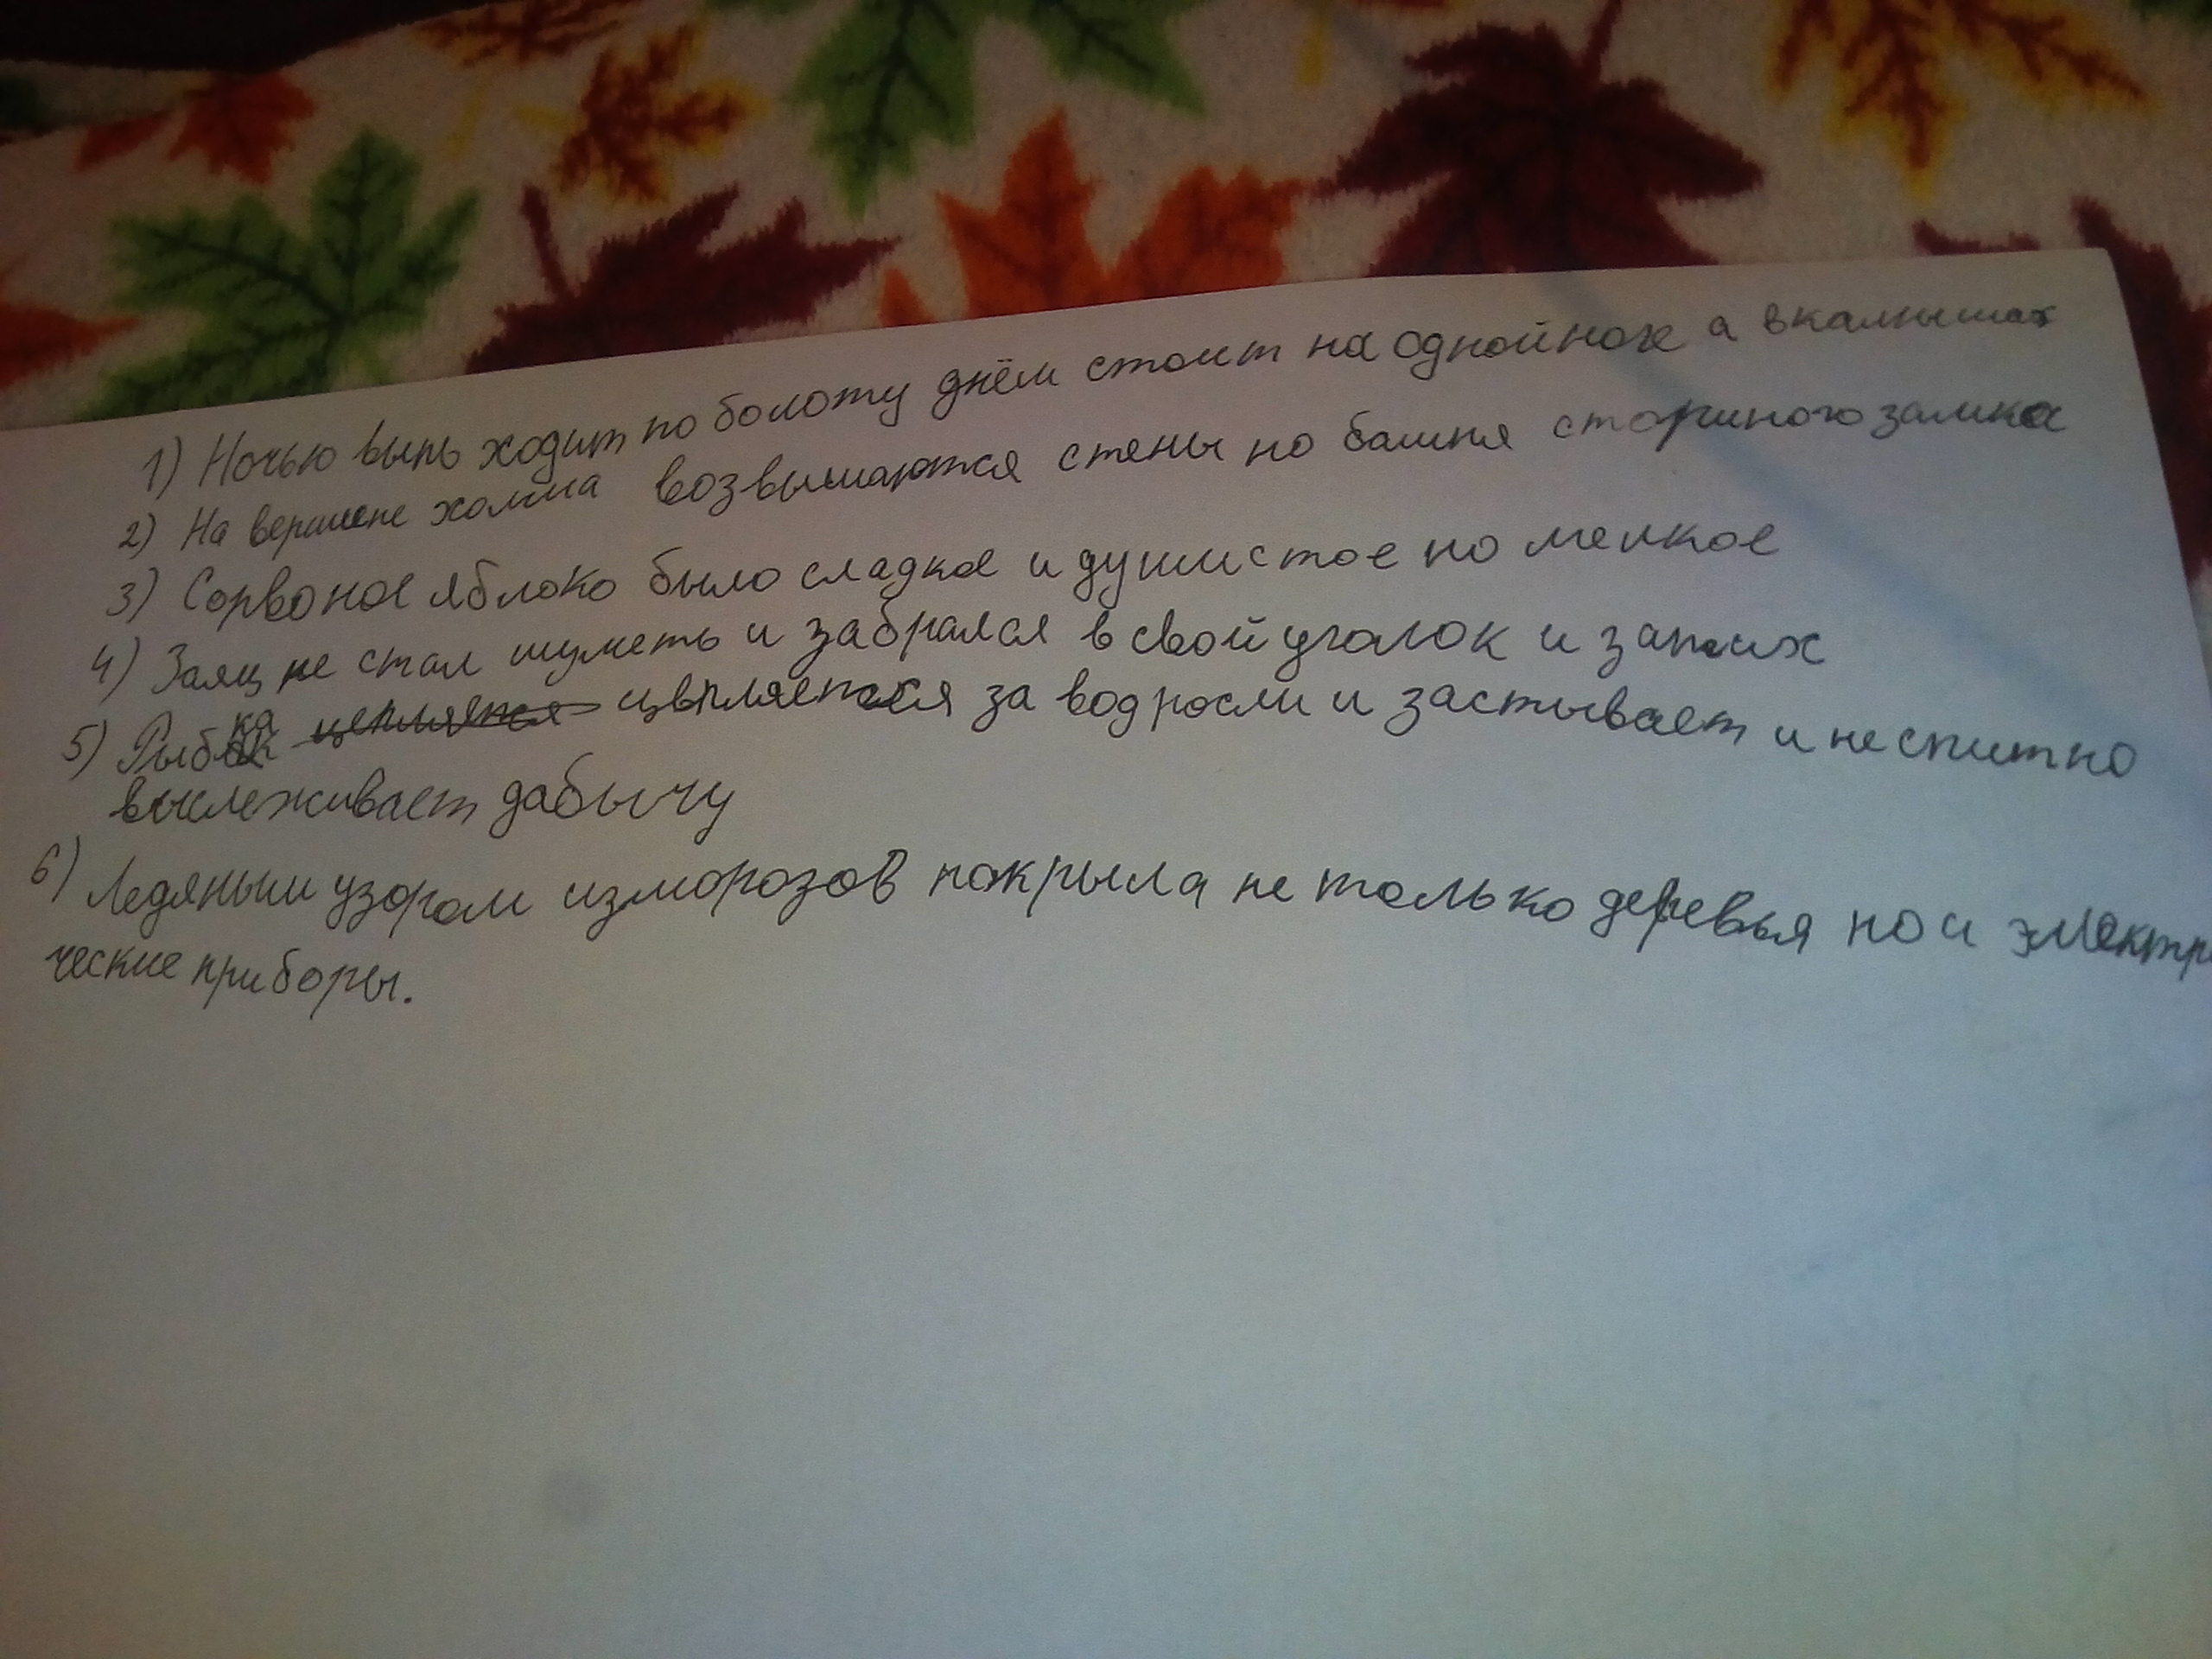 1) Ночью выпь ходит по болоту днём стоит на одной ноге а в камышах
2) На вершене холма возвышаются стены но башня сториного замка
3) Сорвоное яблоко было сладкое и душистое но мелкое
4) Заяц не стал шуметь и забрался в свой уголок и затих
5) Рыбка цепляется цепляется за водросли и застывает и не спит но
выслеживает дабычу
6) Ледяным узором изморозов покрыла не только деревья но и электри
ческие приборы.